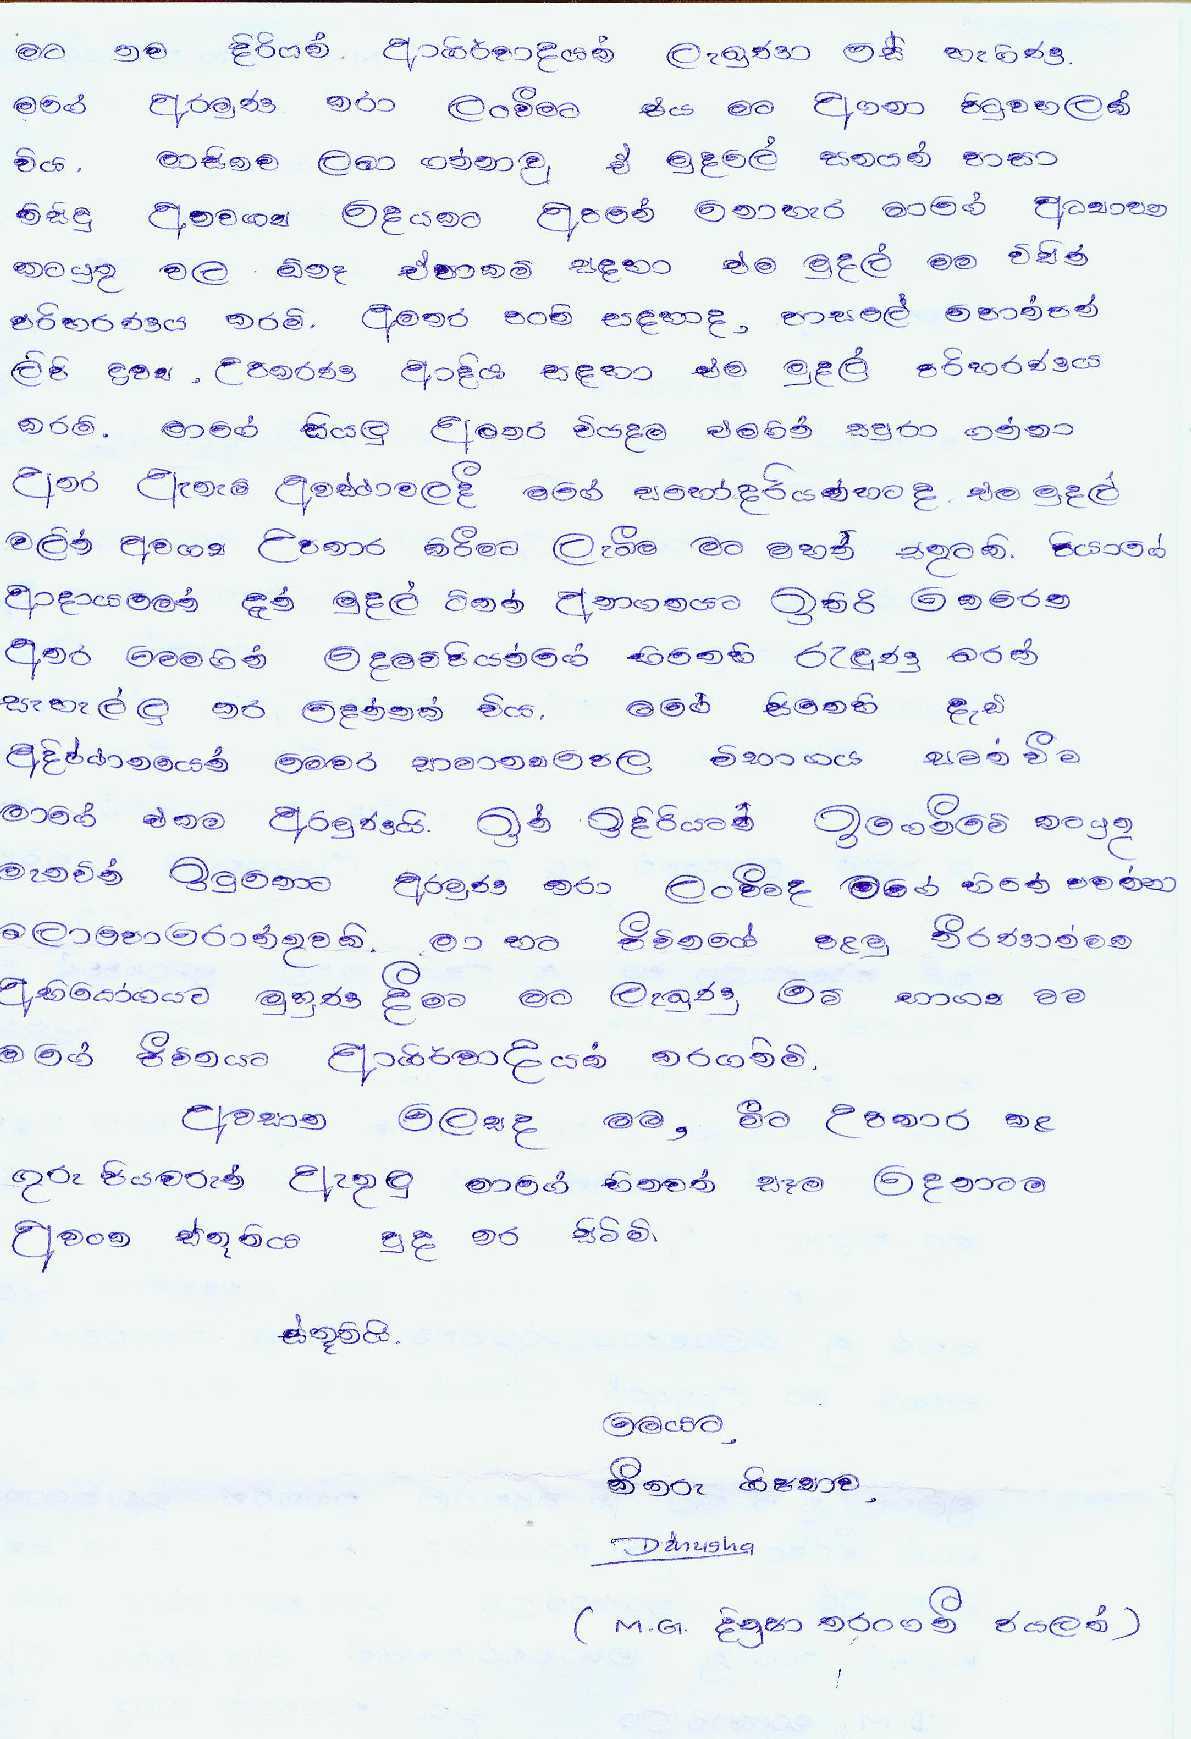 මට තව දිරියත් ආශිර්වාදයක් ලැබුණා සේ හැඟිණ.
මගේ අරමුණ කරා ලංවීමට එය මට අගනා පිටුවහලක්
විය. මාසිකව ලබා ගන්නාවූ ඒ මුදලේ සතයක් පාසා
කිසිදු අනවශ්‍ය දෙයකට අපතේ නොහැර මාගේ අධ්‍යාපන
කටයුතු වල ඕනෑ එපාකම් සඳහා එම මුදල් මම විසින්
පරිහරණය කරමි. අමතර පංති සඳහාද, පාසලේ පොත්පත්
ලිපි ද්‍රව්‍ය, උපකරණ ආදිය සඳහා එම මුදල් පරිහරණය
කරමි. මාගේ සියලු අමතර වියදම එමගින් සපුරා ගන්නා
අතර ඇතැම් අවස්ථාවලදී මගේ සහෝදරියන්හටද එම මුදල්
වලින් අවශ්‍ය උපකාර කිරීමට ලැබීම මට මහත් සතුටකි. පියාගේ
ආදායමෙන් දැන් මුදල් ටිකක් අනාගතයට ඉතිරි කෙරෙන
අතර මෙමගින් දෙමව්පියන්ගේ සිතෙහි රැඳුණු තරක්
සැහැල්ලු කර දෙන්නක් විය. මගේ සිතෙහි දැඩි
අදිෂ්ඨානයෙන් මෙවර සාමාන්‍යපෙල විභාගය සමත් වීම
මාගේ එකම අරමුණයි. ඉන් ඉදිරියටත් ඉගෙනීමේ කටයුතු
මැනවින් ඉටුකොට අරමුණ කරා ලංවීමද මගේ හිතේ පවත්නා
බලාපොරොත්තුවකි. මා හට ජීවිතයේ පළමු තීරණාත්මක
අභියෝගයට මුහුණ දීමට මට ලැබුණු මේ භාග්‍ය මම
මගේ ජීවිතයට ආශිර්වාදයක් කරගතිමි.
අවසාන ලෙසද මම, මීට උපකාර කළ
ගුරු පියවරුන් ඇතුළු මාගේ හිතවත් සෑම දෙනාටම
අවංක ස්තූතිය පුද කර සිටිමි.
ස්තූතියි.
මෙයට,
කීකරු ශිෂ්‍යාව,
Dinusha
( M.G. දිනූෂා තරංගනී ජයලත් )